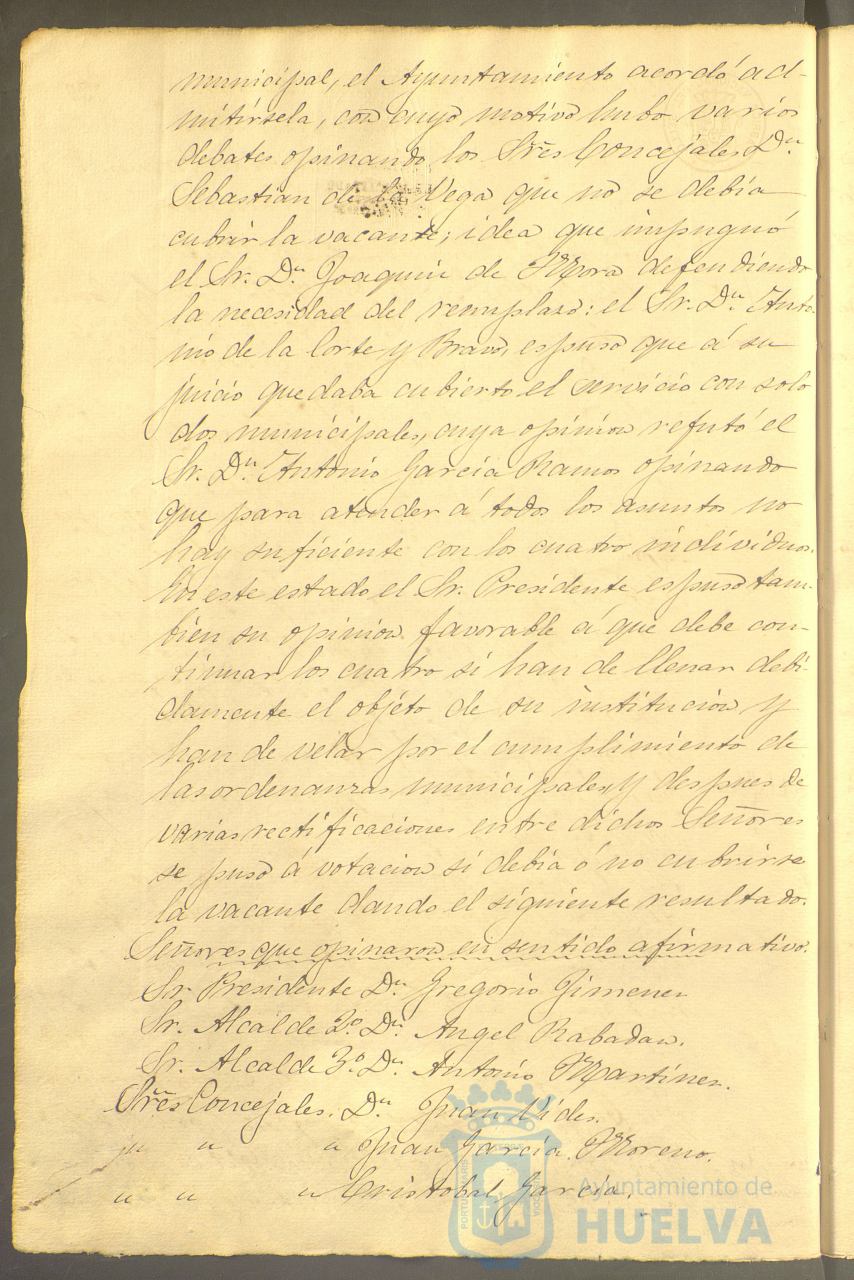 municipal, el Ayuntamiento acordó ad-
mitírsela, con cuyo motivo hubo varios
debates opinando los Sres Concejales Dn
Sebastian de la Vega que no se debía
cubrir la vacante; idea que impugnó
el Sr. Dn Joaquin de Mora defendiendo
la necesidad del remplazo: el Sr. Dn Anto-
nio de la Corte y Bravo, espuso que á su
juicio quedaba cubierto el servicio con solo
dos municipales, cuya opinion refutó el
Sr. Dn Antonio García Ramos opinando
que para atender á todos los asuntos no
hay suficiente con los cuatro individuos.
En este estado el Sr. Presidente espuso tam-
bien su opinion favorable á que debe con-
tinuar los cuatro si han de llenar debi-
damente el objéto de su institucion y
han de velar por el cumplimiento de
las ordenanzas municipales, y despues de
varias rectificaciones entre dichos Señores
se puso á votacion si debía ó no cubrirse
la vacante dando el siguiente resultado.
Señores que opinaron en sentido afirmativo.
Sr Presidente Dn Gregorio Jimenez
Sr. Alcalde 2º Dn Angel Rabadan.
Sr. Alcalde 3º Dn Antonio Martinez.
Sres Concejales. Dn Juan Vides.
" " " Juan García Moreno.
" " " Cristobal García.
Ayuntamiento de
HUELVA